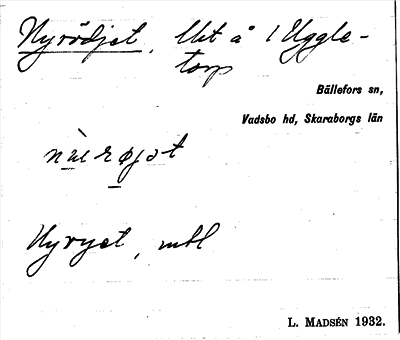 Nyrödjet, lht å 1 Uggle-
torp
Bällefors sn,
Vadsbo hd, Skaraborgs län
Nyryet, mbl
L. MADSÉN 1932.